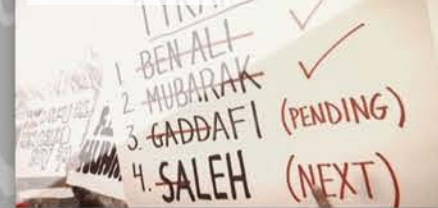 1. BEN ALI
2. MUBARAK
3. GADDAFI (PENDING)
4. SALEH (NEXT)